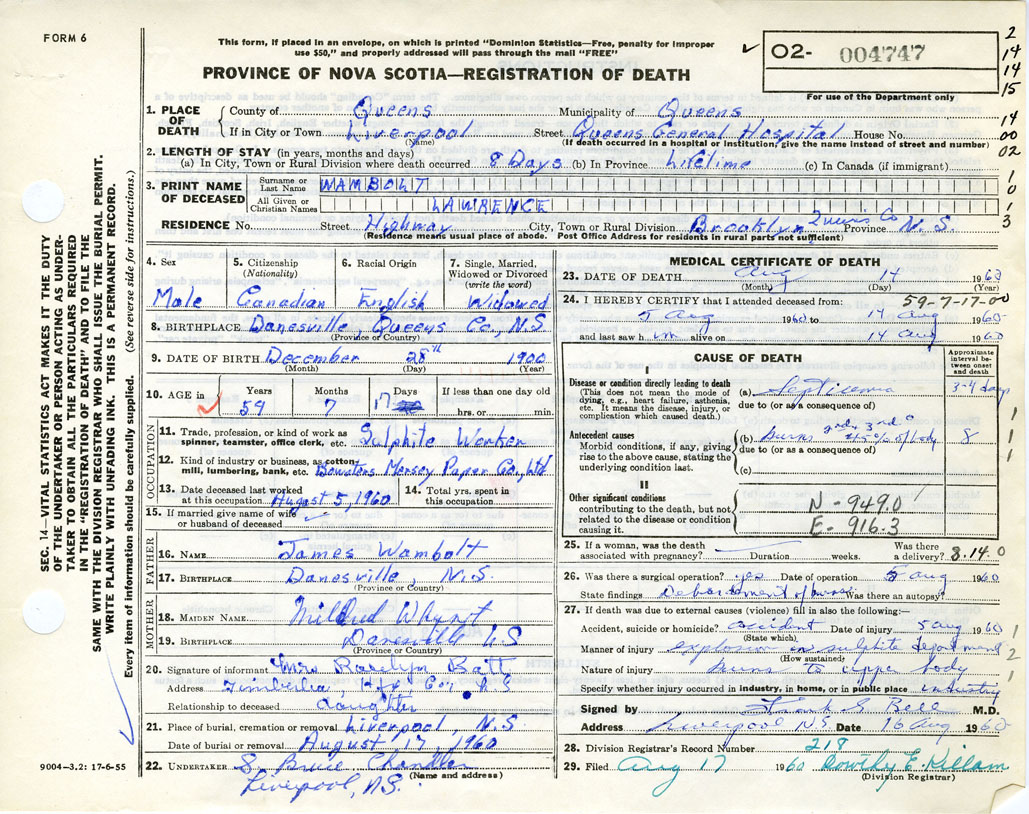 FORM 6
This form, if placed in an envelope, on which is printed "Dominion Statistics—Free, penalty for improper
use $50," and properly addressed will pass through the mail "FREE"
PROVINCE OF NOVA SCOTIA—REGISTRATION OF DEATH
✓ 02- 004747
For use of the Department only
2
14
14
15
14
00
02
1
0
1
3
SEC. 14—VITAL STATISTICS ACT MAKES IT THE DUTY
OF THE UNDERTAKER OR PERSON ACTING AS UNDER-
TAKER TO OBTAIN ALL THE PARTICULARS REQUIRED
IN THE "REGISTRATION OF DEATH" AND TO FILE THE
SAME WITH THE DIVISION REGISTRAR WHO SHALL ISSUE THE BURIAL PERMIT.
WRITE PLAINLY WITH UNFADING INK. THIS IS A PERMANENT RECORD.
Every item of information should be carefully supplied. (See reverse side for instructions.)
1. PLACE OF DEATH
County of Queens Municipality of Queens
If in City or Town Liverpool Street Queens General Hospital House No.
(Name) (If death occurred in a hospital or institution, give the name instead of street and number)
2. LENGTH OF STAY (in years, months and days)
(a) In City, Town or Rural Division where death occurred 8 Days (b) In Province Lifetime (c) In Canada (if immigrant)
3. PRINT NAME OF DECEASED
Surname or Last Name WAMBOLT
All Given or Christian Names LAWRENCE
RESIDENCE No. Street Highway City, Town or Rural Division Brooklyn Queens Co Province N.S.
(Residence means usual place of abode. Post Office Address for residents in rural parts not sufficient)
4. Sex Male
5. Citizenship (Nationality) Canadian
6. Racial Origin English
7. Single, Married, Widowed or Divorced (write the word) Widowed
8. BIRTHPLACE Danesville, Queens Co., N.S
(Province or Country)
9. DATE OF BIRTH December 28th 1900
(Month) (Day) (Year)
10. AGE in ✓ Years 59 Months 7 Days 17 If less than one day old hrs. or min.
OCCUPATION
11. Trade, profession, or kind of work as spinner, teamster, office clerk, etc. Sulphite Worker
12. Kind of industry or business, as cotton mill, lumbering, bank, etc. Bowaters Mersey Paper Co, Ltd
13. Date deceased last worked at this occupation. August 5, 1960
14. Total yrs. spent in this occupation
15. If married give name of wife or husband of deceased
FATHER
16. NAME James Wambolt
17. BIRTHPLACE Danesville, N.S.
(Province or Country)
MOTHER
18. MAIDEN NAME Mildred Whynt
19. BIRTHPLACE Danesville N S
(Province or Country)
20. Signature of informant Mrs Roselyn Batt
Address Timberlea, Hfx Co; N S
Relationship to deceased daughter
21. Place of burial, cremation or removal Liverpool, N.S.
Date of burial or removal August 17, 1960
22. UNDERTAKER S. Bruce Chandler
(Name and address)
Liverpool, N.S.
9004—3.2: 17-6-55
MEDICAL CERTIFICATE OF DEATH
23. DATE OF DEATH Aug 14 1960
(Month) (Day)
24. I HEREBY CERTIFY that I attended deceased from: 59-7-17-00
5 Aug 1960 to 14 Aug 1960
and last saw him alive on 14 Aug 1960
CAUSE OF DEATH
Approximate interval between onset and death
I
Disease or condition directly leading to death
(This does not mean the mode of dying, e.g., heart failure, asthenia, etc. It means the disease, injury, or complication which caused death.)
(a) Septicemia 3-4 days
due to (or as a consequence of)
Antecedent causes
Morbid conditions, if any, giving rise to the above cause, stating the underlying condition last.
(b) Burns 2nd, 3rd 45% of body 8
due to (or as a consequence of)
(c)
II
Other significant conditions
contributing to the death, but not related to the disease or condition causing it.
N-949.0
E-916.3
1
1
1
25. If a woman, was the death associated with pregnancy? Duration weeks. Was there a delivery? 8.14.0
26. Was there a surgical operation? yes Date of operation 5 Aug 1960
State findings Debridement of burns Was there an autopsy?
27. If death was due to external causes (violence) fill in also the following:—
Accident, suicide or homicide? accident Date of injury 5 Aug 1960 1
(State which)
Manner of injury explosion in sulphite department 2
(How sustained)
Nature of injury burns to upper body 1
Specify whether injury occurred in industry, in home, or in public place industry
Signed by Frank G. Bell M.D.
Address Liverpool N.S. Date 16 Aug 1960
28. Division Registrar's Record Number 218
29. Filed Aug 17 1960 Dorothy E. Killam
(Division Registrar)